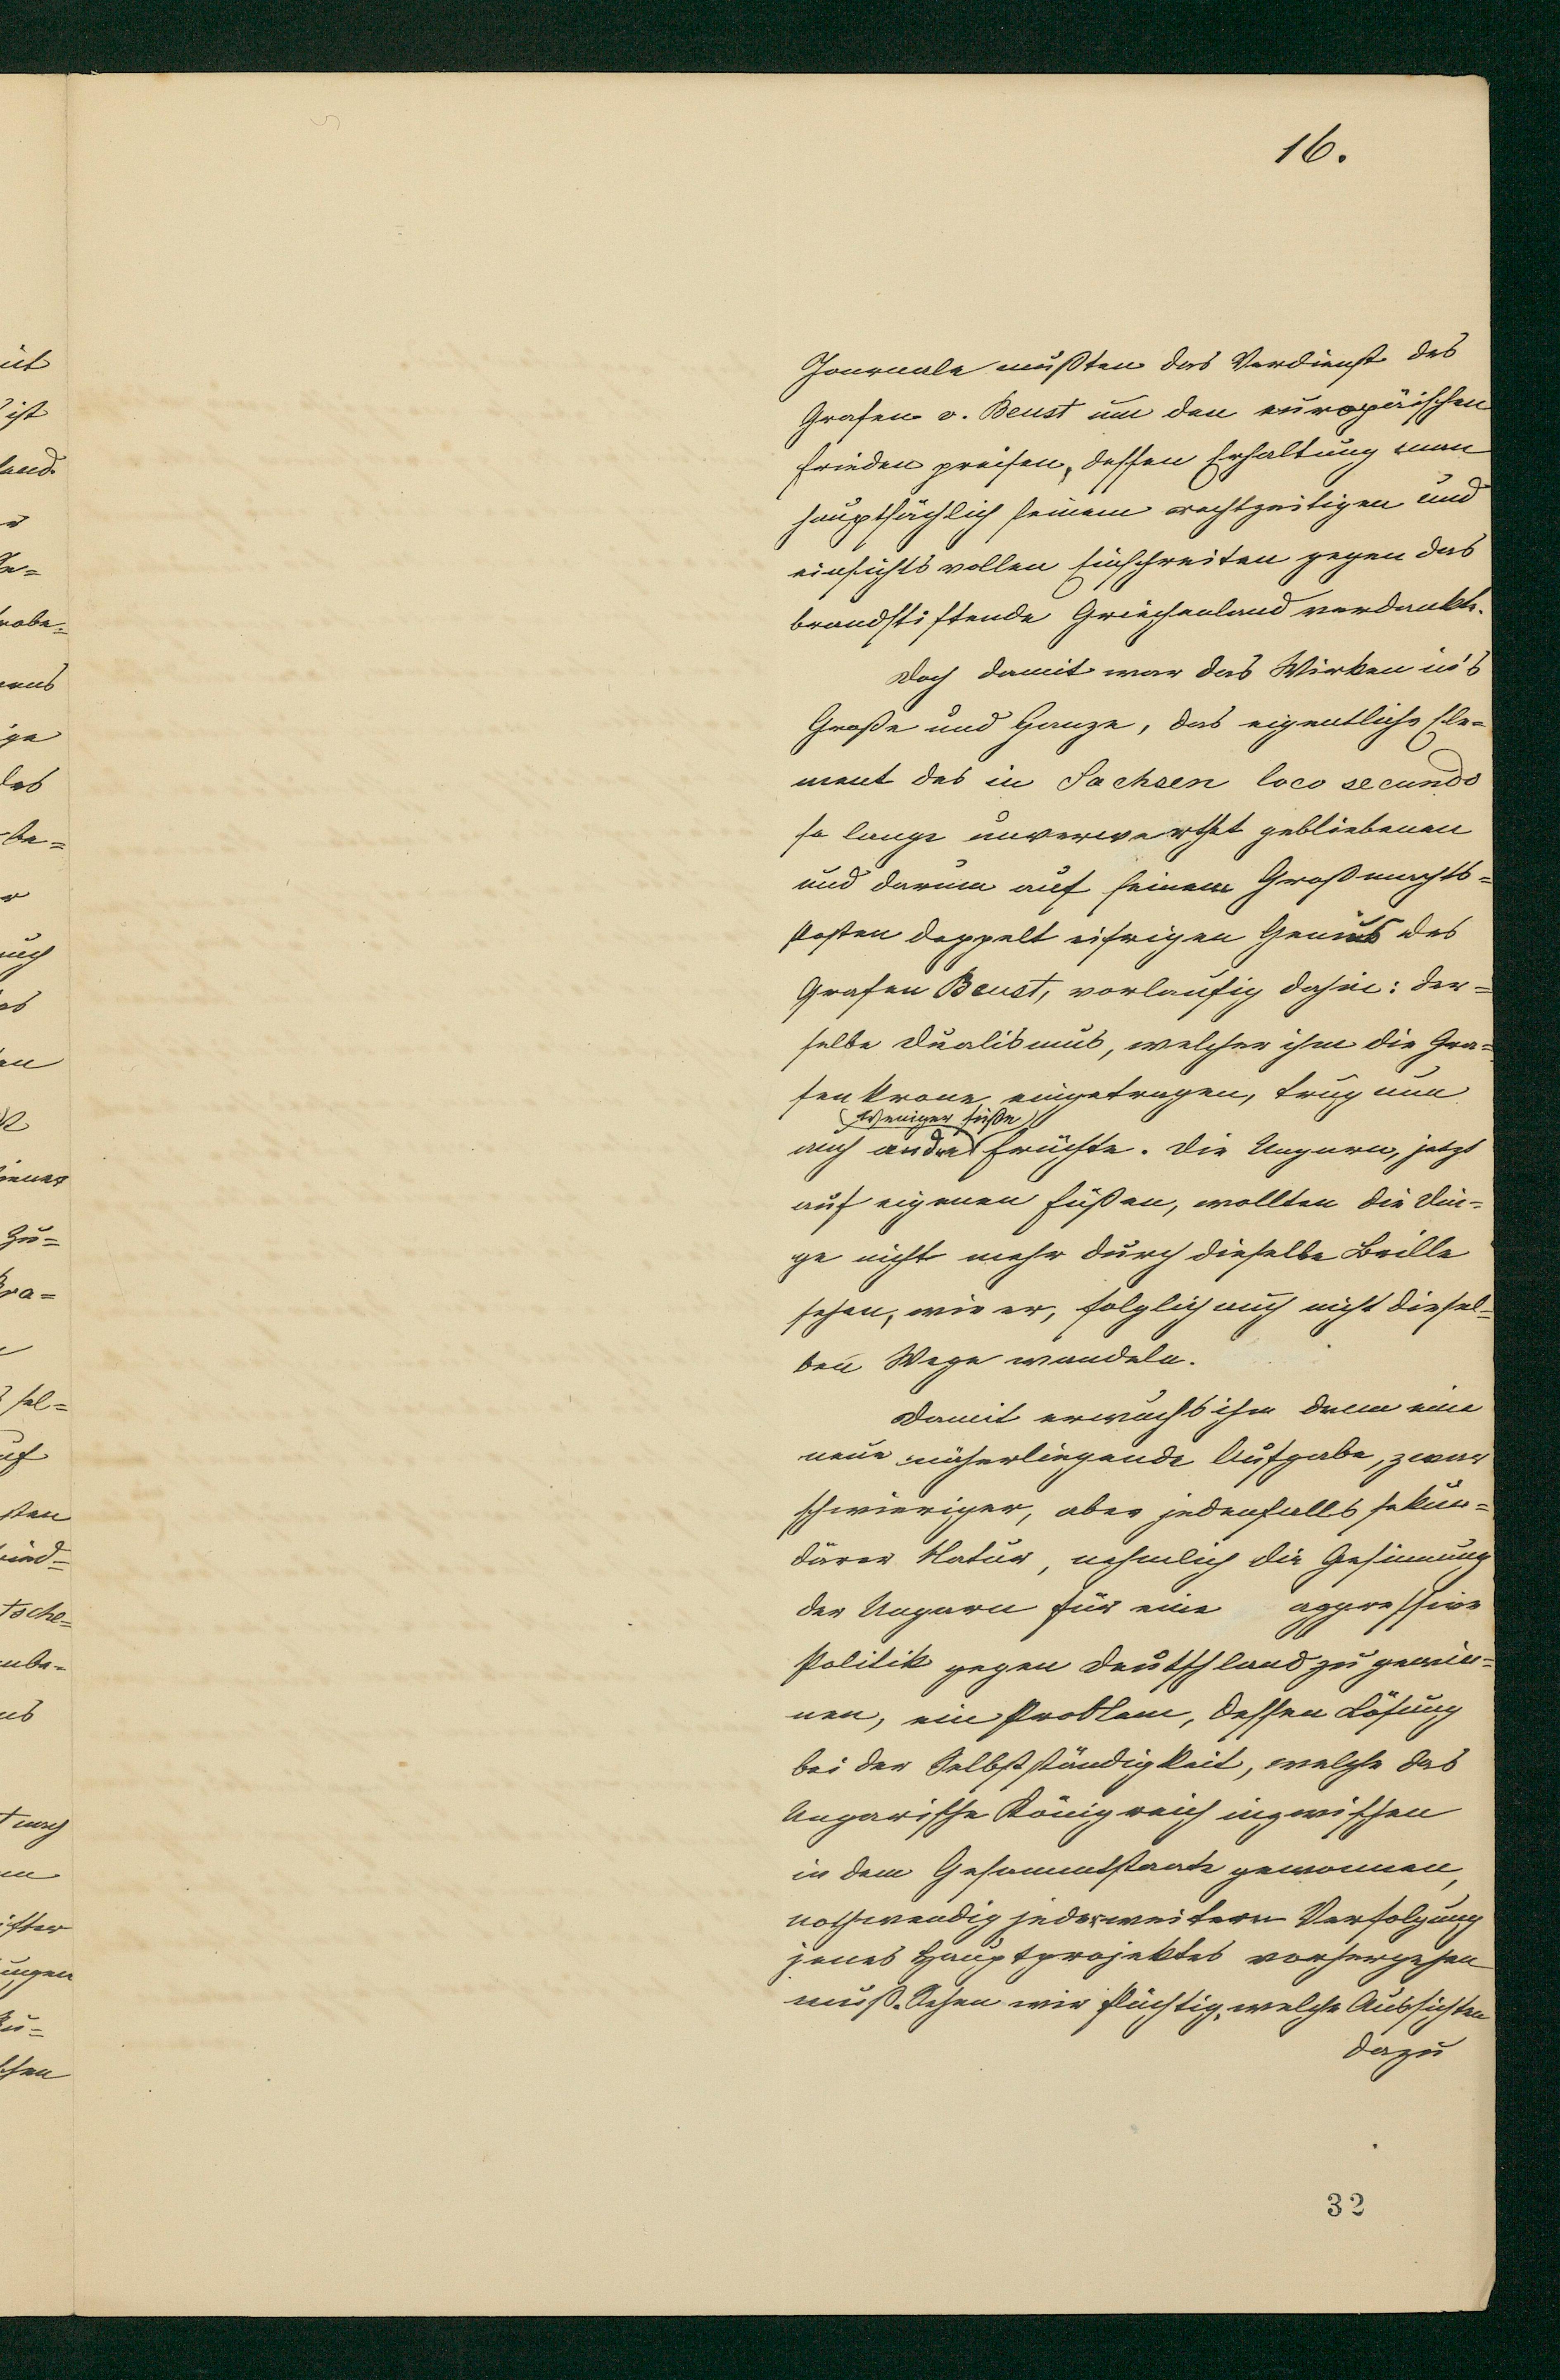 16.
Journale mußten das Verdienst des
Grafen v. Beust um den europäischen
Frieden preisen, dessen Erhaltung man
hauptsächlich seinem rechtzeitigen und
einsichtsvollen Einschreiten gegen das
brandstiftende Griechenland verdankte.
Doch damit war das Wirken in's
Große und Ganze, das eigentliche Ele=
ment des in Sachsen loco secundo
so lange unverwerthet gebliebenen
und darum auf seinem Großmachts=
posten doppelt eifrigen Genius des
Grafen Beust, vorläufig dahin: der=
selbe Dualismus, welcher ihm die Gra=
fenkrone eingetragen, trug nun
(weniger süße)
auch andre Früchte. Die Ungarn, jetzt
auf eigenen Füßen, wollten die Din=
ge nicht mehr durch dieselbe Brille
sehen, wie er, folglich auch nicht diesel=
ben Wege wandeln.
Damit erwuchs ihm denn eine
neue näherliegende Aufgabe, zwar
schwieriger, aber jedenfalls sekun=
därer Natur, nehmlich die Gesinnung
der Ungarn für eine aggressive
Politik gegen Deutschland zu gewin=
nen, ein Problem, dessen Lösung
bei der Selbstständigkeit, welche das
Ungarische Königreich inzwischen
in dem Gesammtstaate gewonnen,
nothwendig jeder weitern Verfolgung
jenes Hauptprojektes vorhergehen
muß. Sehen wir flüchtig, welche Aussichten
dazu
32